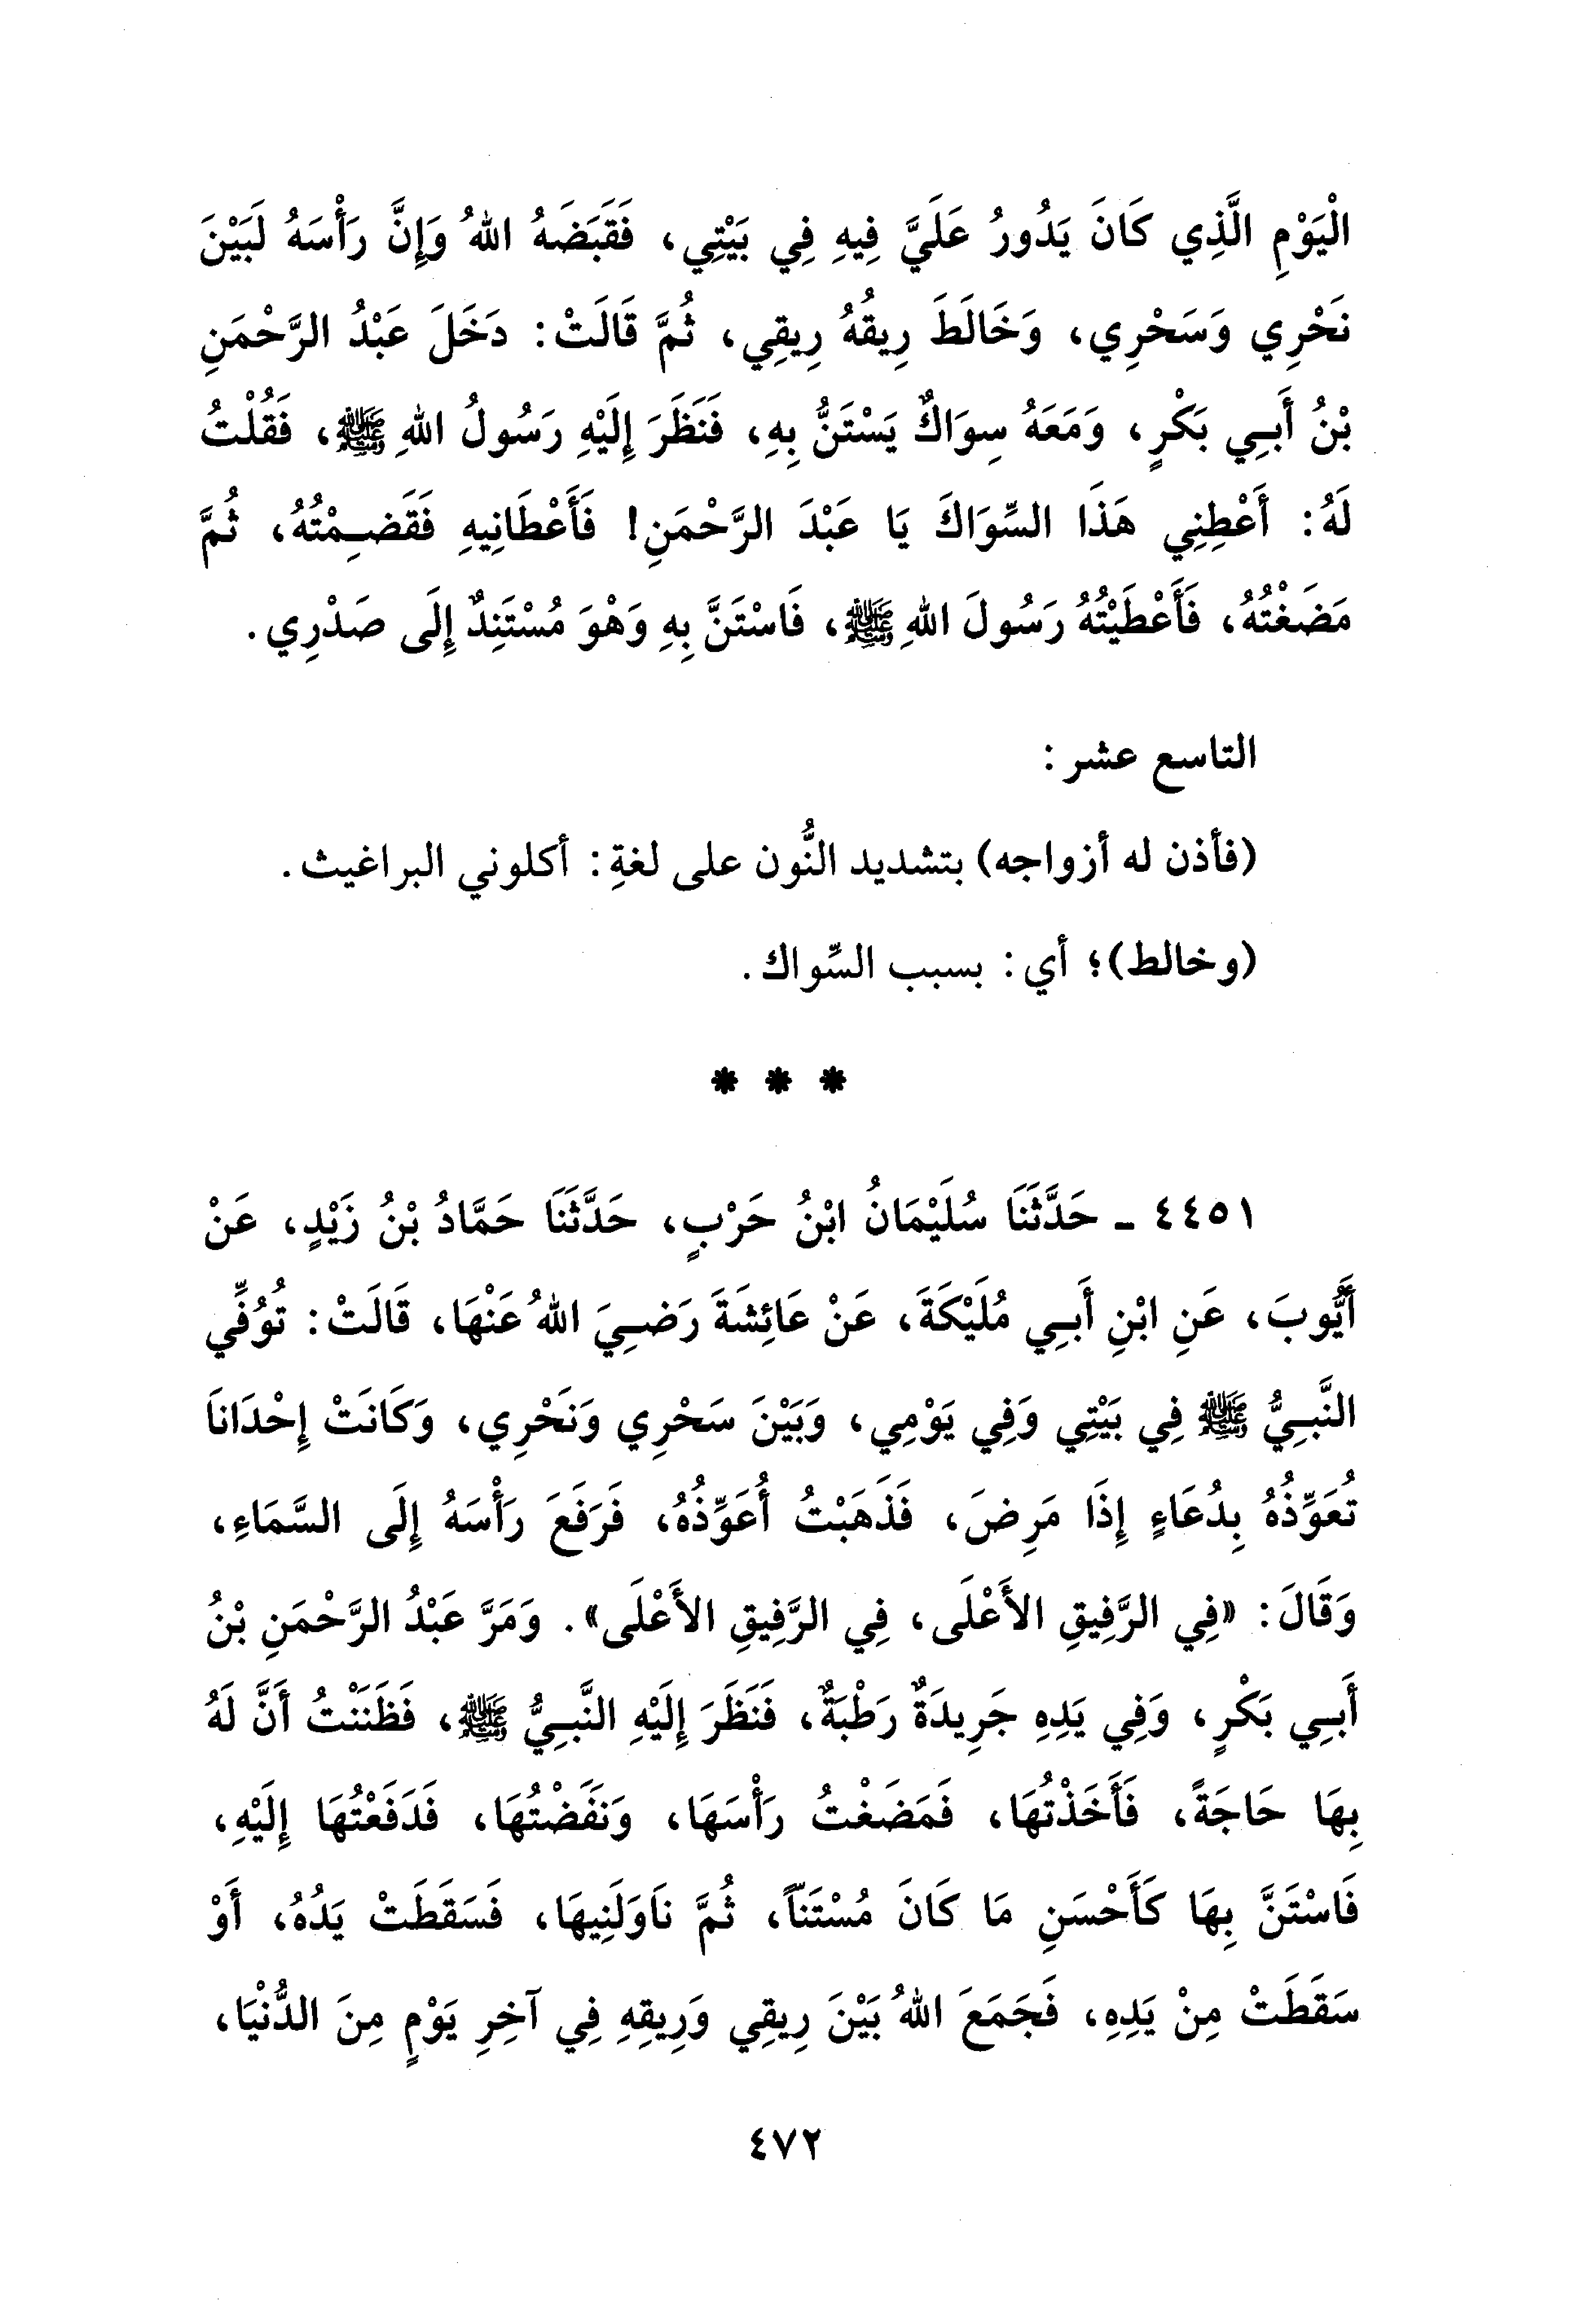 الْيَوْمِ الَّذِي كَانَ يَدُورُ عَلَيَّ فِيهِ فِي بَيْتِي، فَقَبَضَهُ اللهُ وَإِنَّ رَأْسَهُ لَبَيْنَ
نَحْرِي وَسَحْرِي، وَخَالَطَ رِيقُهُ رِيقِي، ثُمَّ قَالَتْ: دَخَلَ عَبْدُ الرَّحْمَنِ
بْنُ أَبِي بَكْرٍ، وَمَعَهُ سِوَاكٌ يَسْتَنُّ بِهِ، فَنَظَرَ إِلَيْهِ رَسُولُ اللهِ ﷺ، فَقُلْتُ
لَهُ: أَعْطِنِي هَذَا السِّوَاكَ يَا عَبْدَ الرَّحْمَنِ! فَأَعْطَانِيهِ فَقَضِمْتُهُ، ثُمَّ
مَضَغْتُهُ، فَأَعْطَيْتُهُ رَسُولَ اللهِ ﷺ، فَاسْتَنَّ بِهِ وَهْوَ مُسْتَنِدٌ إِلَى صَدْرِي.
التاسع عشر:
(فأذن له أزواجه) بتشديد النُّون على لغةِ: أكلوني البراغيث.
(وخالط)؛ أي: بسبب السِّواك.
* * *
٤٤٥١ - حَدَّثَنَا سُلَيْمَانُ ابْنُ حَرْبٍ، حَدَّثَنَا حَمَّادُ بْنُ زَيْدٍ، عَنْ
أَيُّوبَ، عَنِ ابْنِ أَبِي مُلَيْكَةَ، عَنْ عَائِشَةَ رَضِيَ اللهُ عَنْهَا، قَالَتْ: تُوُفِّي
النَّبِيُّ ﷺ فِي بَيْتِي وَفِي يَوْمِي، وَبَيْنَ سَحْرِي وَنَحْرِي، وَكَانَتْ إِحْدَانَا
تُعَوِّذُهُ بِدُعَاءٍ إِذَا مَرِضَ، فَذَهَبْتُ أُعَوِّذُهُ، فَرَفَعَ رَأْسَهُ إِلَى السَّمَاءِ،
وَقَالَ: «فِي الرَّفِيقِ الأَعْلَى، فِي الرَّفِيقِ الأَعْلَى». وَمَرَّ عَبْدُ الرَّحْمَنِ بْنُ
أَبِي بَكْرٍ، وَفِي يَدِهِ جَرِيدَةٌ رَطْبَةٌ، فَنَظَرَ إِلَيْهِ النَّبِيُّ ﷺ، فَظَنَنْتُ أَنَّ لَهُ
بِهَا حَاجَةً، فَأَخَذْتُهَا، فَمَضَغْتُ رَأْسَهَا، وَنَفَضْتُهَا، فَدَفَعْتُهَا إِلَيْهِ،
فَاسْتَنَّ بِهَا كَأَحْسَنِ مَا كَانَ مُسْتَنّاً، ثُمَّ نَاوَلَنِيهَا، فَسَقَطَتْ يَدُهُ، أَوْ
سَقَطَتْ مِنْ يَدِهِ، فَجَمَعَ اللهُ بَيْنَ رِيقِي وَرِيقِهِ فِي آخِرِ يَوْمٍ مِنَ الدُّنْيَا،
٤٧٢